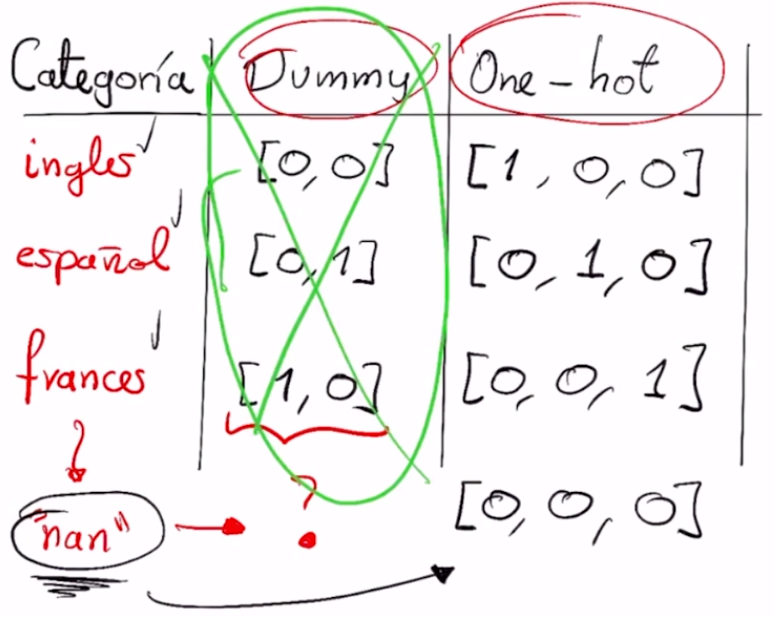 Categoría Dummy One-hot
ingles [0,0] [1, 0, 0]
español [0,1] [0, 1, 0]
frances [1,0] [0, 0, 1]
"nan" ? [0, 0, 0]